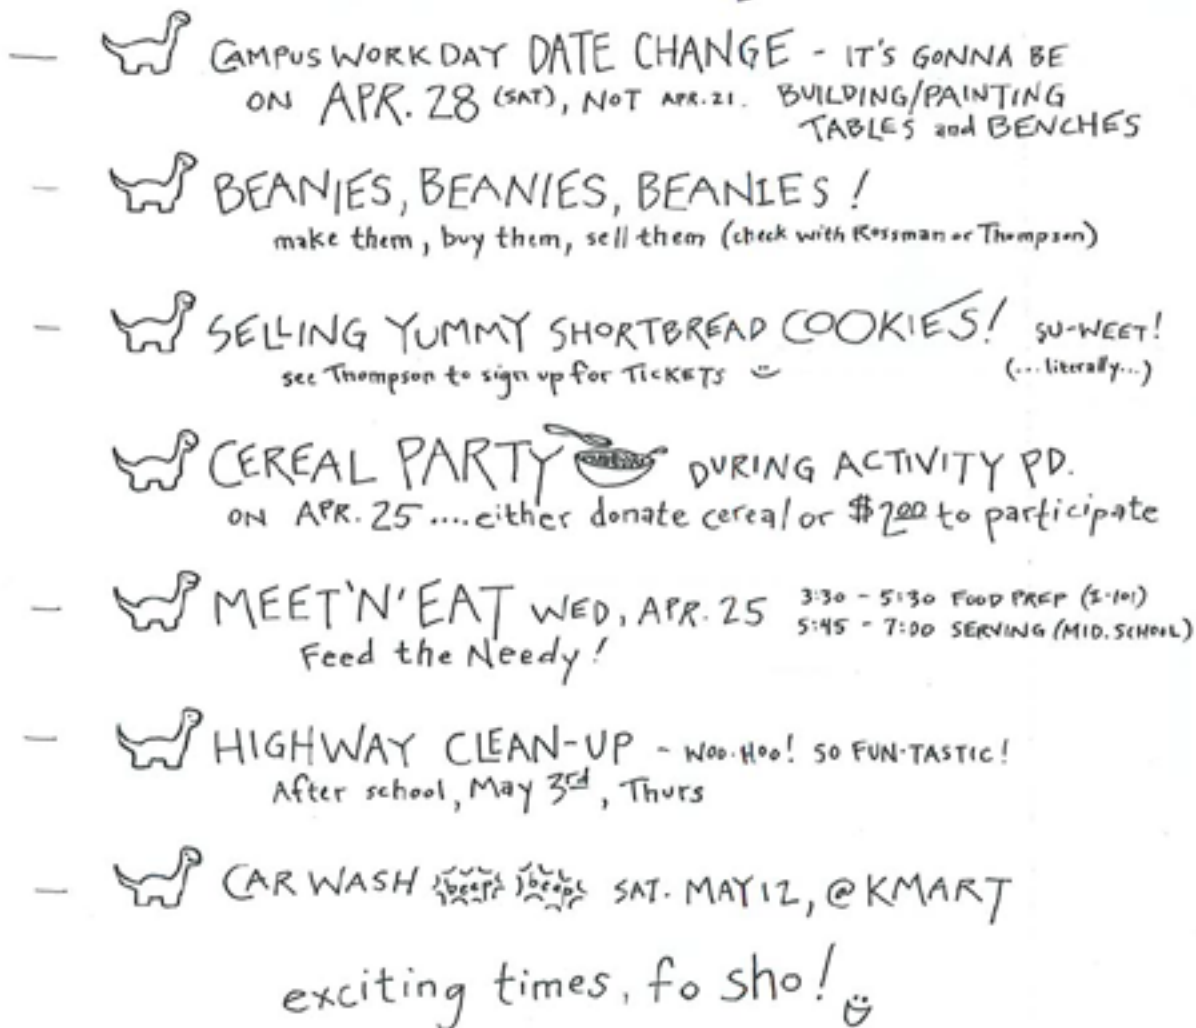 CAMPUS WORK DAY DATE CHANGE - IT'S GONNA BE
ON APR. 28 (SAT), NOT APR. 21. BUILDING/PAINTING
TABLES and BENCHES
BEANIES, BEANIES, BEANIES!
make them, buy them, sell them (check with Rossman or Thompson)
SELLING YUMMY SHORTBREAD COOKIES! SU-WEET!
see Thompson to sign up for TICKETS (...literally...)
CEREAL PARTY DURING ACTIVITY PD.
ON APR. 25....either donate cereal or $2.00 to participate
MEET 'N' EAT WED, APR. 25 3:30 - 5:30 FOOD PREP (I-101)
5:45 - 7:00 SERVING (MID. SCHOOL)
Feed the Needy!
HIGHWAY CLEAN-UP - WOO-HOO! SO FUN-TASTIC!
After school, May 3rd, Thurs
CAR WASH beep! beep! SAT. MAY 12, @ KMART
exciting times, fo sho!